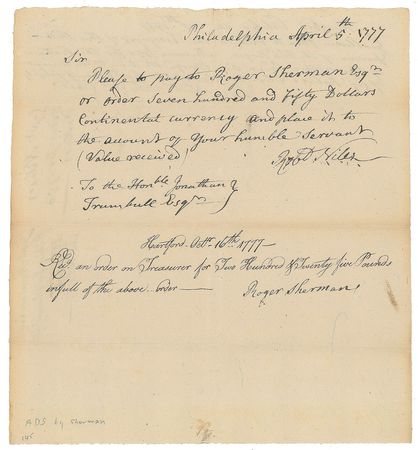 Philadelphia April 5th 1777
Sir
Please to pay to Roger Sherman Esqr
or order Seven hundred and fifty Dollars
Continental currency and place it to
the account of Your humble Servant
(Value received) Robt Niles
To the Honble Jonathan
Trumbull Esqr
Hartford Octr 16th 1777
Recd an order on Treasurer for Two Hundred & Twenty five Pounds
in full of the above order
Roger Sherman
ADS by Sherman